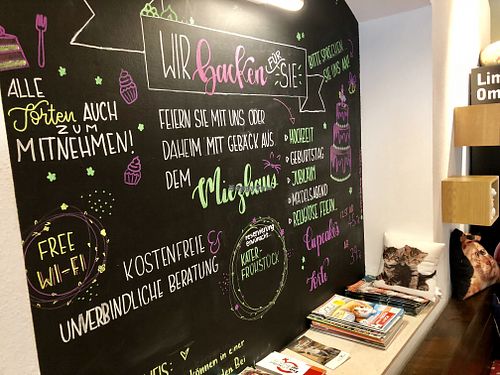 WIR backen FÜR SIE
BITTE SPRECHEN
SIE UNS AN!
ALLE
Torten AUCH
ZUM
MITNEHMEN!
FEIERN SIE MIT UNS ODER
DAHEIM MIT GEBÄCK AUS
DEM Miezhaus
HOCHZEIT
GEBURTSTAG
JUBILÄUM
MÄDELSABEND
RELIGIÖSE FEIERN
Cupcakes
AB
Torte
FREE
WI-FI
KOSTENFREIE &
UNVERBINDLICHE BERATUNG
reservierung
erwünscht
KATER-
FRÜHSTÜCK
können in einer
den Bei
Lim
Om